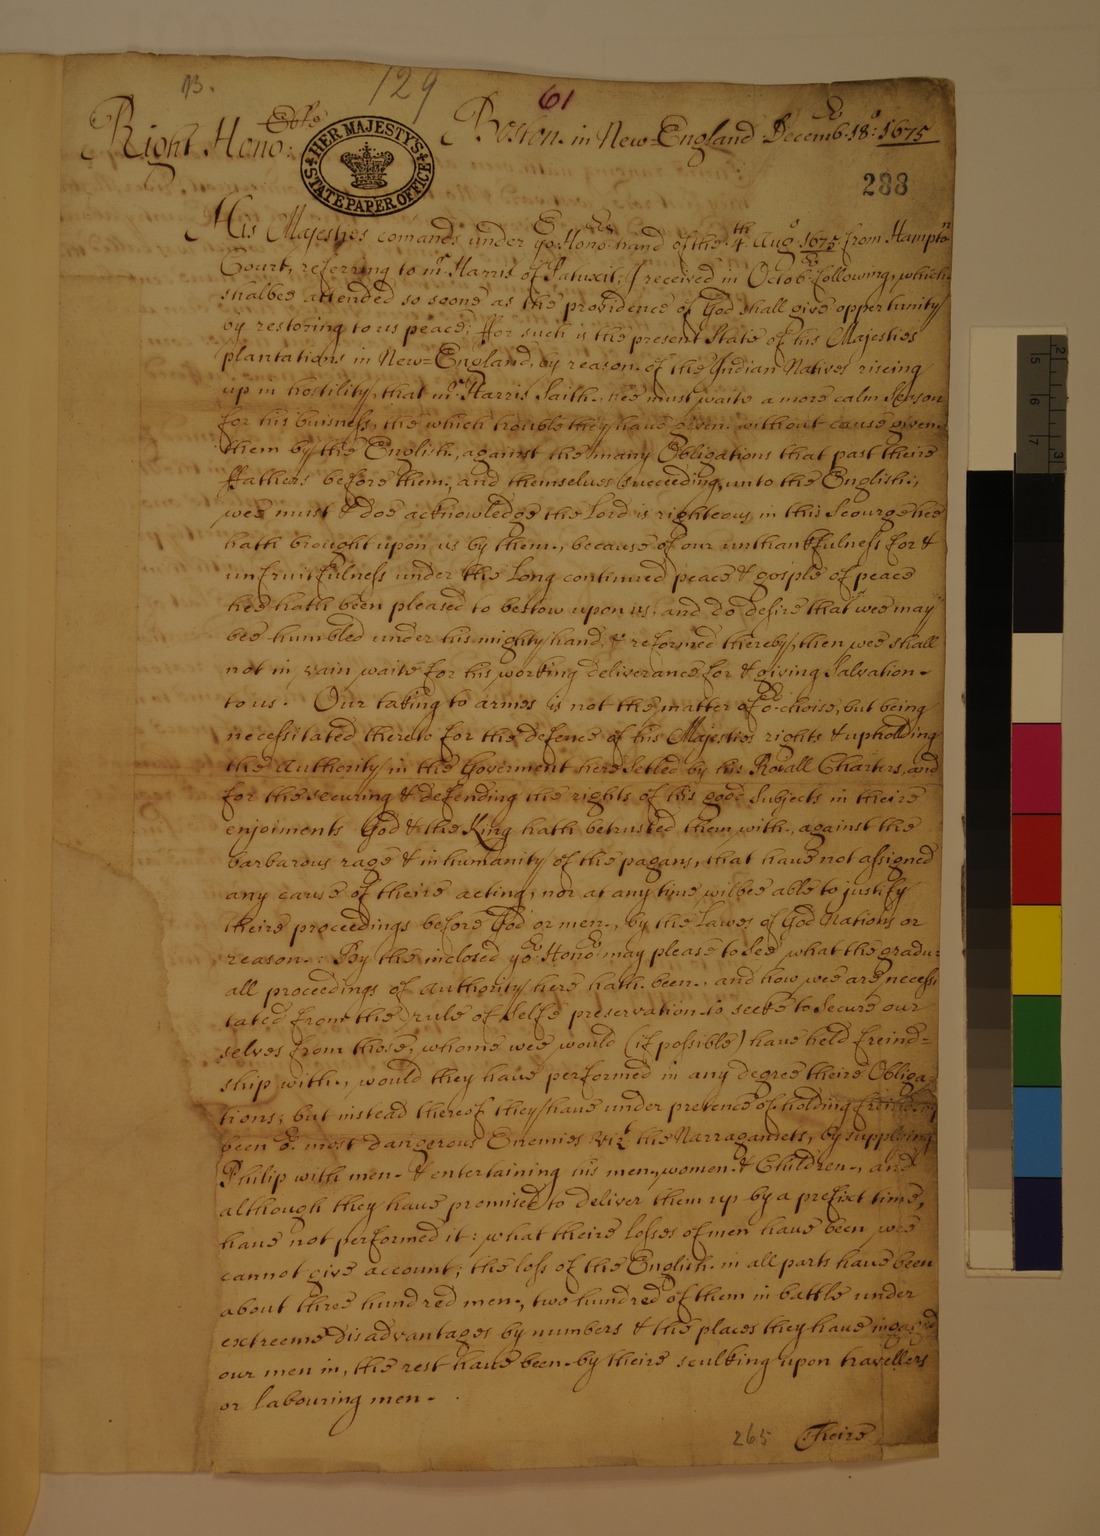 13.
129
61
Right Hono:ble
Boston. in New=England Decemb:r 18o: 1675
HER MAJESTY'S
STATE PAPER OFFICE
288
His Majesties comands under yor Honors hand of the 4th Augo 1675 from Hampton
Court, referring to mr Harris of Patuxit, I received in Octob:r following, which
shalbee attended so soone as the providence of God shall give oppertunity
by restoring to us peace; ffor such is the present State of his Majesties
plantations in New=England, by reason of the Indian Natives riseing
up in hostility, that mr Harris saith, hee must waite a more calm season
for his buisness, the which trouble they have given without cause given
them by the English, against the many Obligations that past theire
ffathers before them, and themselves succeeding, unto the English;
wee must & doe acknowledge the Lord is righteous in this Scourge hee
hath brought upon us by them, because of our unthankfulness for &
unfruitfulness under the long continued peace & gosple of peace
hee hath been pleased to bestow upon us, and do desire that wee may
bee humbled under his mighty hand, & reformed thereby, then wee shall
not in vain waite for his working deliverance for & giving Salvation
to us. Our taking to armes is not the matter of or choise, but being
necessitated thereto for the defence of his Majesties rights & upholding
the Authority in the Goverment here setled by his Royall Charters, and
for the securing & defending the rights of his good Subjects in theire
enjoiments God & the King hath betrusted them with, against the
barbarous rage & inhumanity of the pagans, that have not assigned
any cause of theire acting, nor at any time wilbee able to justify
theire proceedings before God or men, by the Lawes of God Nations or
reason: By the inclosed yor Honor may please to see what the gradu=
all proceedings of Authority here hath been, and how wee are necessi
tated from the rule of selfe preservation to seeke to secure our
selves from those, whome wee would (if possible) have held freind=
ship with, would they have performed in any degree theire Obliga=
tions; but instead thereof they have under pretence of holding
been or most dangerous Enemies vizt the Narragansets, by supplying
Philip with men & entertaining his men, women & Children, and
although they have promised to deliver them up by a prefixt time,
have not performed it: what theire losses of men have been wee
cannot give account; the loss of the English in all parts have been
about three hundred men, two hundred of them in battle under
extreeme disadvantages by numbers & the places they have ingaged
our men in, the rest have been by theire sculking upon travellers
or labouring men.
265
Theire
15
16
17
2
3